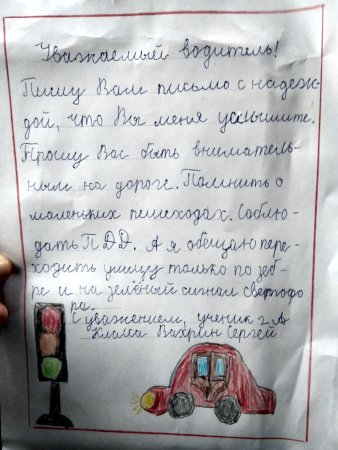 Уважаемый водитель!
Пишу Вам письмо с надеж-
дой, что Вы меня услышите.
Прошу Вас быть вниматель-
ным на дороге. Помнить о
маленьких пешеходах. Соблю-
дать ПДД. А я обещаю пере-
ходить улицу только по зеб-
ре и на зелёный сигнал светофо
ра.
С уважением, ученик 2 А
класса Вахрин Сергей